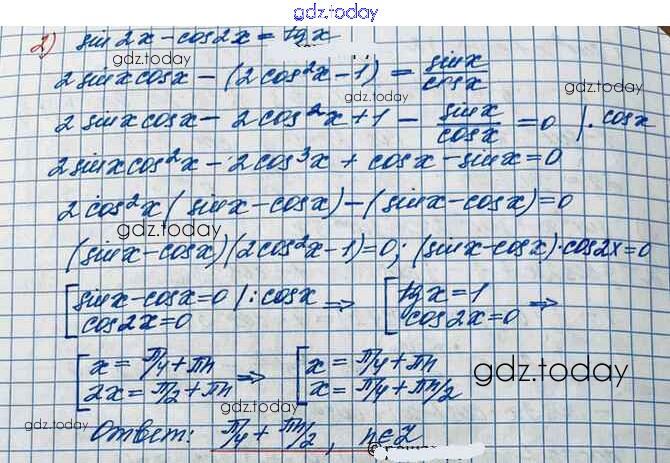 gdz.today
2) sin 2x - cos 2x = tg x
gdz.today
2 sinx cosx - (2cos²x - 1) = sinx/cosx
gdz.today
2 sinx cosx - 2cos²x + 1 - sinx/cosx = 0 |· cosx
gdz.today
2 sinx cos²x - 2cos³x + cosx - sinx = 0
2 cos²x (sinx - cosx) - (sinx - cosx) = 0
gdz.today
(sinx - cosx)(2cos²x - 1) = 0; (sinx - cosx)·cos2x = 0
[ sinx - cosx = 0 |: cosx ⇒ [ tgx = 1 ⇒
cos2x = 0 cos2x = 0
gdz.today
[ x = π/4 + πn ⇒ [ x = π/4 + πn
2x = π/2 + πn x = π/4 + πn/2
gdz.today
gdz.today
Ответ: π/4 + πn/2, n∈Z